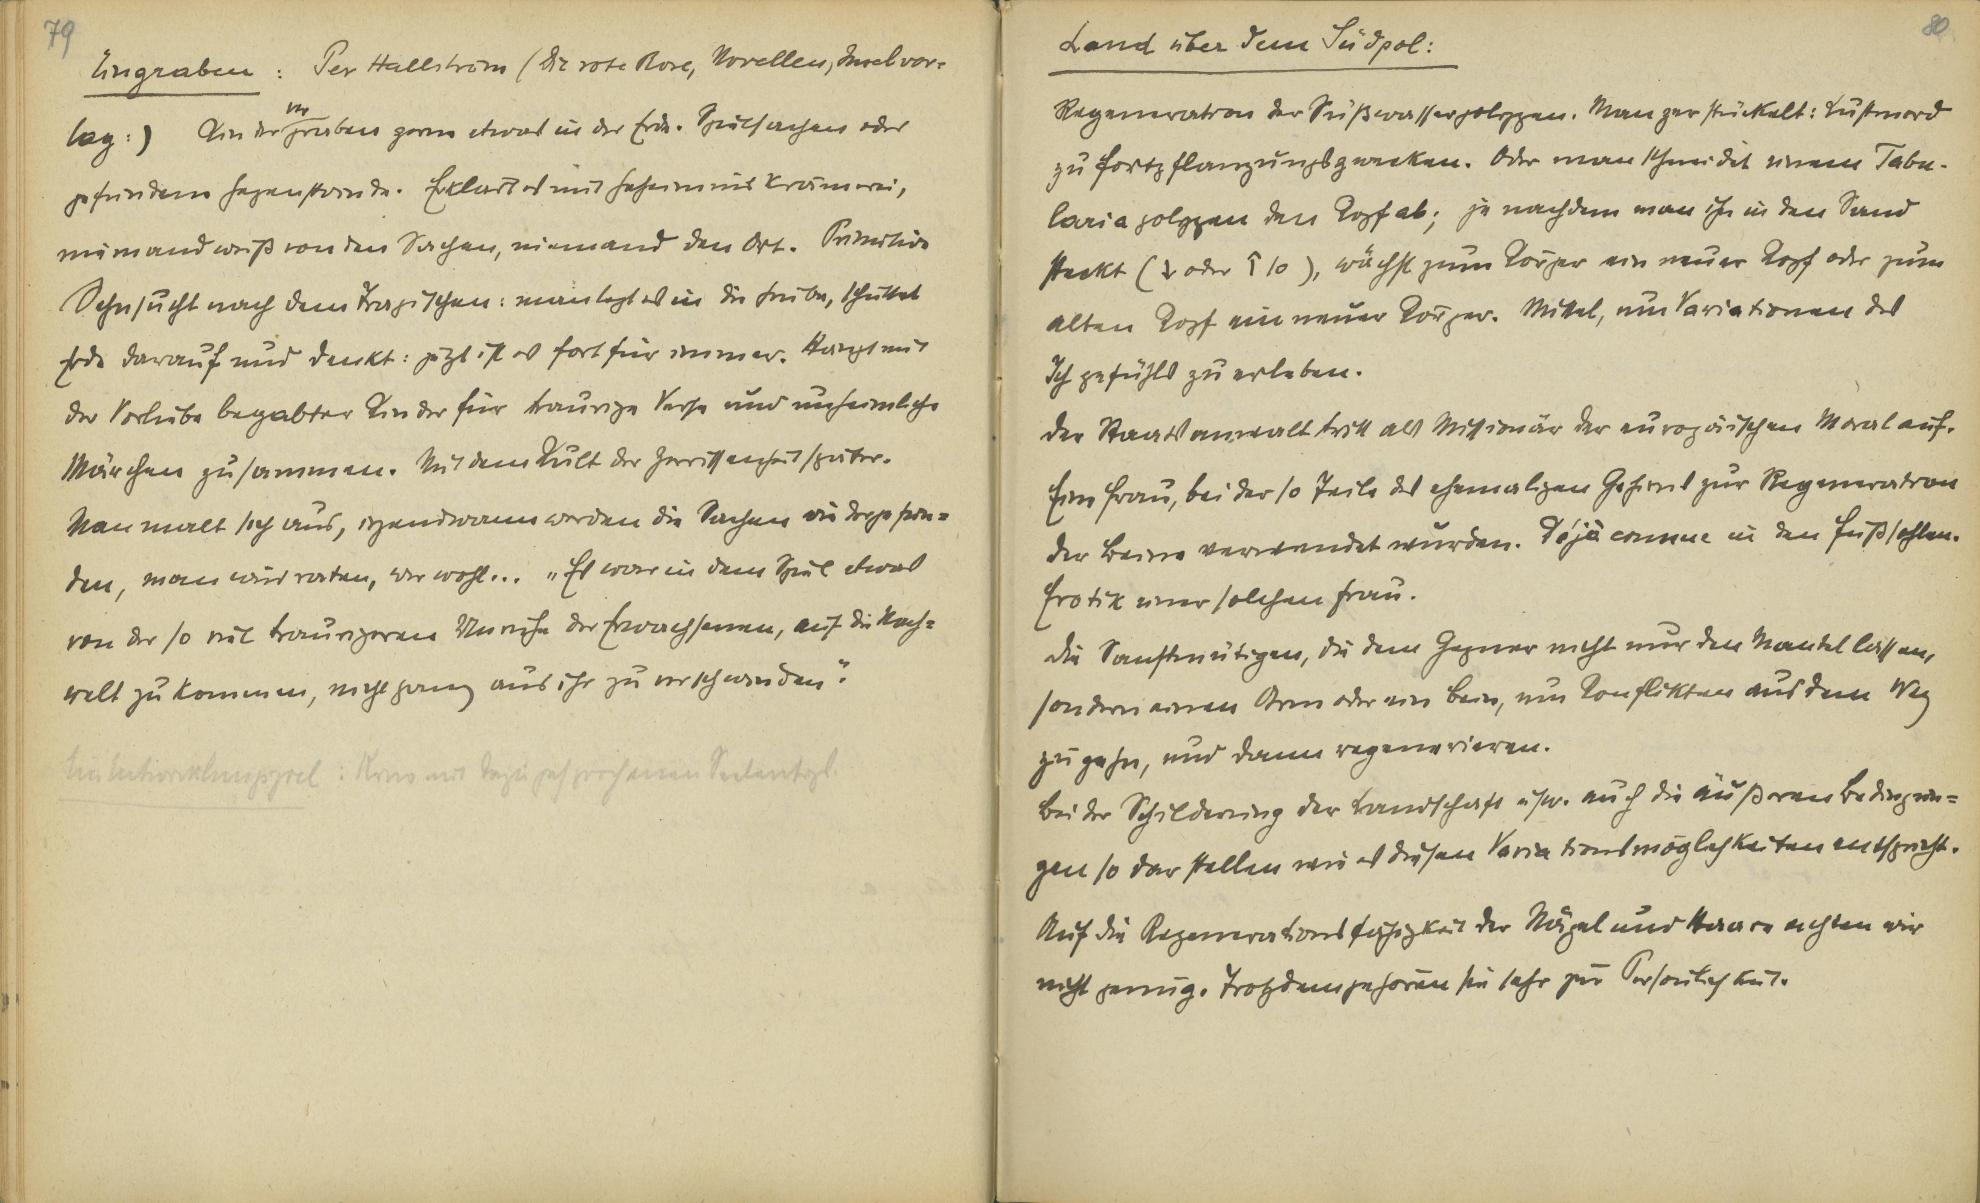 79
Eingraben : Per Hallström (Die rote Rose, Novellen, Inselver-
lag:) Kinder vergraben gerne etwas in der Erde. Spielsachen oder
gefundene Gegenstände. Erklärt es mit Geheimniskrämerei,
niemand weiß von den Sachen, niemand den Ort. Primitive
Sehnsucht nach dem Tragischen: man legt es in die Grube, schüttet
Erde darauf und denkt: jetzt ist es fort für immer. Hängt mit
der Vorliebe begabter Kinder für traurige Verse und unheimliche
Märchen zusammen. Mit dem Kult der Zerrissenheit später.
Man malt sich aus, irgendwann werden die Sachen wiedergefun-
den, man wird raten, wer wohl... „Es war in dem Spiel etwas
von der so viel traurigeren Unruhe der Erwachsenen, auf die Nach-
welt zu kommen, nicht ganz aus ihr zu verschwinden".
80
Land über dem Südpol:
Regeneration der Süßwasserpolypen. Man zerstückelt: Lustmord
zu Fortpflanzungszwecken. Oder man schneidet einem Tubu-
laria polypen den Kopf ab; je nachdem man ihn in den Sand
steckt (↓ oder ↑ so), wächst zum Körper ein neuer Kopf oder zum
alten Kopf ein neuer Körper. Mittel, um Variationen des
Ichgefühls zu erleben.
Der Staatsanwalt tritt als Missionär der europäischen Moral auf.
Eine Frau, bei der so Teile des ehemaligen Gehirns zur Regeneration
der Beine verwendet wurden. Déjà connue in den Fußsohlen.
Erotik einer solchen Frau.
Die Sanftmütigen, die dem Gegner nicht nur den Mantel lassen,
sondern einen Arm oder ein Bein, um Konflikten aus dem Weg
zu gehn, und dann regenerieren.
Bei der Schilderung der Landschaft usw. auch die äußeren Bedingun-
gen so darstellen wie es diesen Variationsmöglichkeiten entspricht.
Auf die Regenerationsfähigkeit der Nägel und Haare achten wir
nicht genug. Trotzdem gehören sie sehr zur Persönlichkeit.